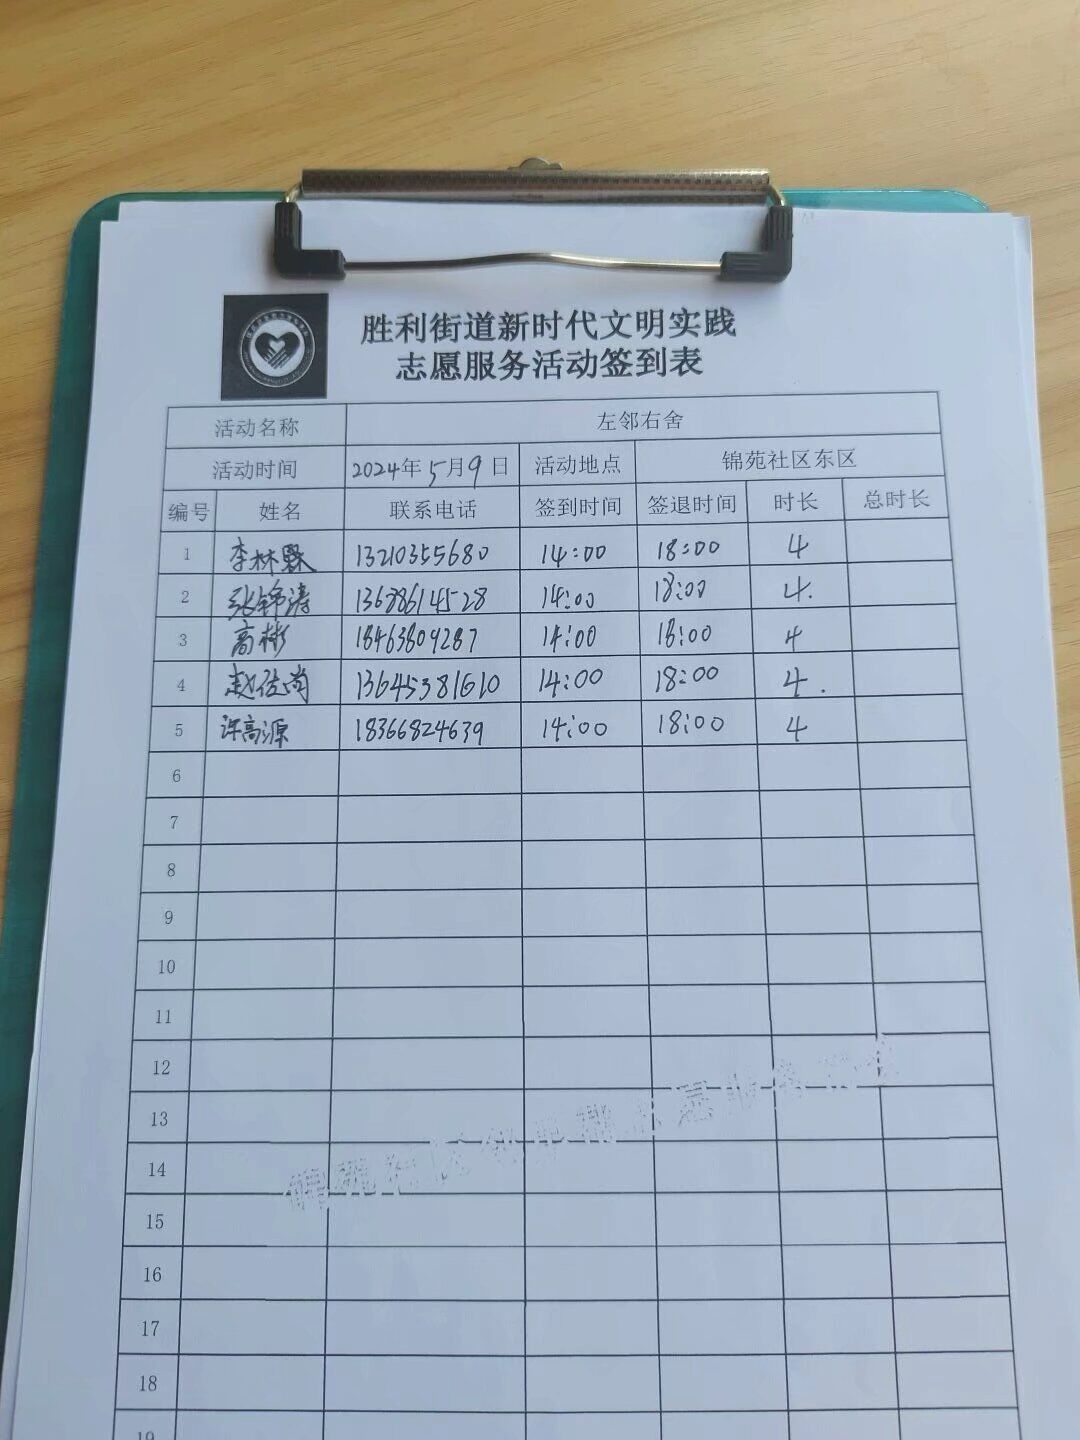 胜利街道新时代文明实践
志愿服务活动签到表
活动名称 左邻右舍
活动时间 2024年5月9日 活动地点 锦苑社区东区
编号 姓名 联系电话 签到时间 签退时间 时长 总时长
1 李林 13210355680 14:00 18:00 4
2 张锦涛 13688614528 14:00 18:00 4.
3 高彬 18463809287 14:00 18:00 4
4 赵佳尚 13645381610 14:00 18:00 4.
5 许高源 18366824639 14:00 18:00 4
6
7
8
9
10
11
12
13
14
15
16
17
18
19